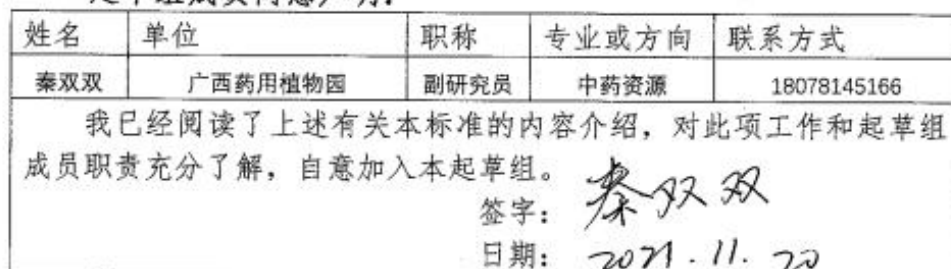 起草组成员同意声明:
姓名 单位 职称 专业或方向 联系方式
秦双双 广西药用植物园 副研究员 中药资源 18078145166
我已经阅读了上述有关本标准的内容介绍,对此项工作和起草组
成员职责充分了解,自意加入本起草组。
签字: 秦双双
日期: 2021.11.20